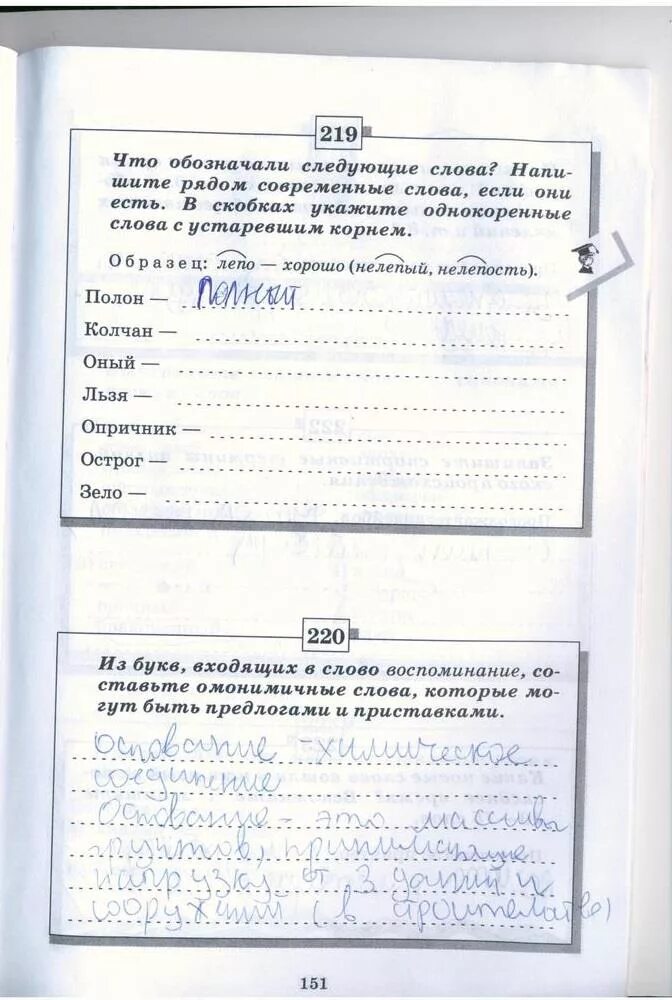 219
Что обозначали следующие слова? Напи-
шите рядом современные слова, если они
есть. В скобках укажите однокоренные
слова с устаревшим корнем.
Образец: лепо — хорошо (нелепый, нелепость).
Полон — Полный
Колчан —
Оный —
Льзя —
Опричник —
Острог —
Зело —
220
Из букв, входящих в слово воспоминание, со-
ставьте омонимичные слова, которые мо-
гут быть предлогами и приставками.
основание - химическое
соединение
Основание - это массив
грунтов, принимающие
нагрузку от зданий и
сооружений (в строительстве)
151